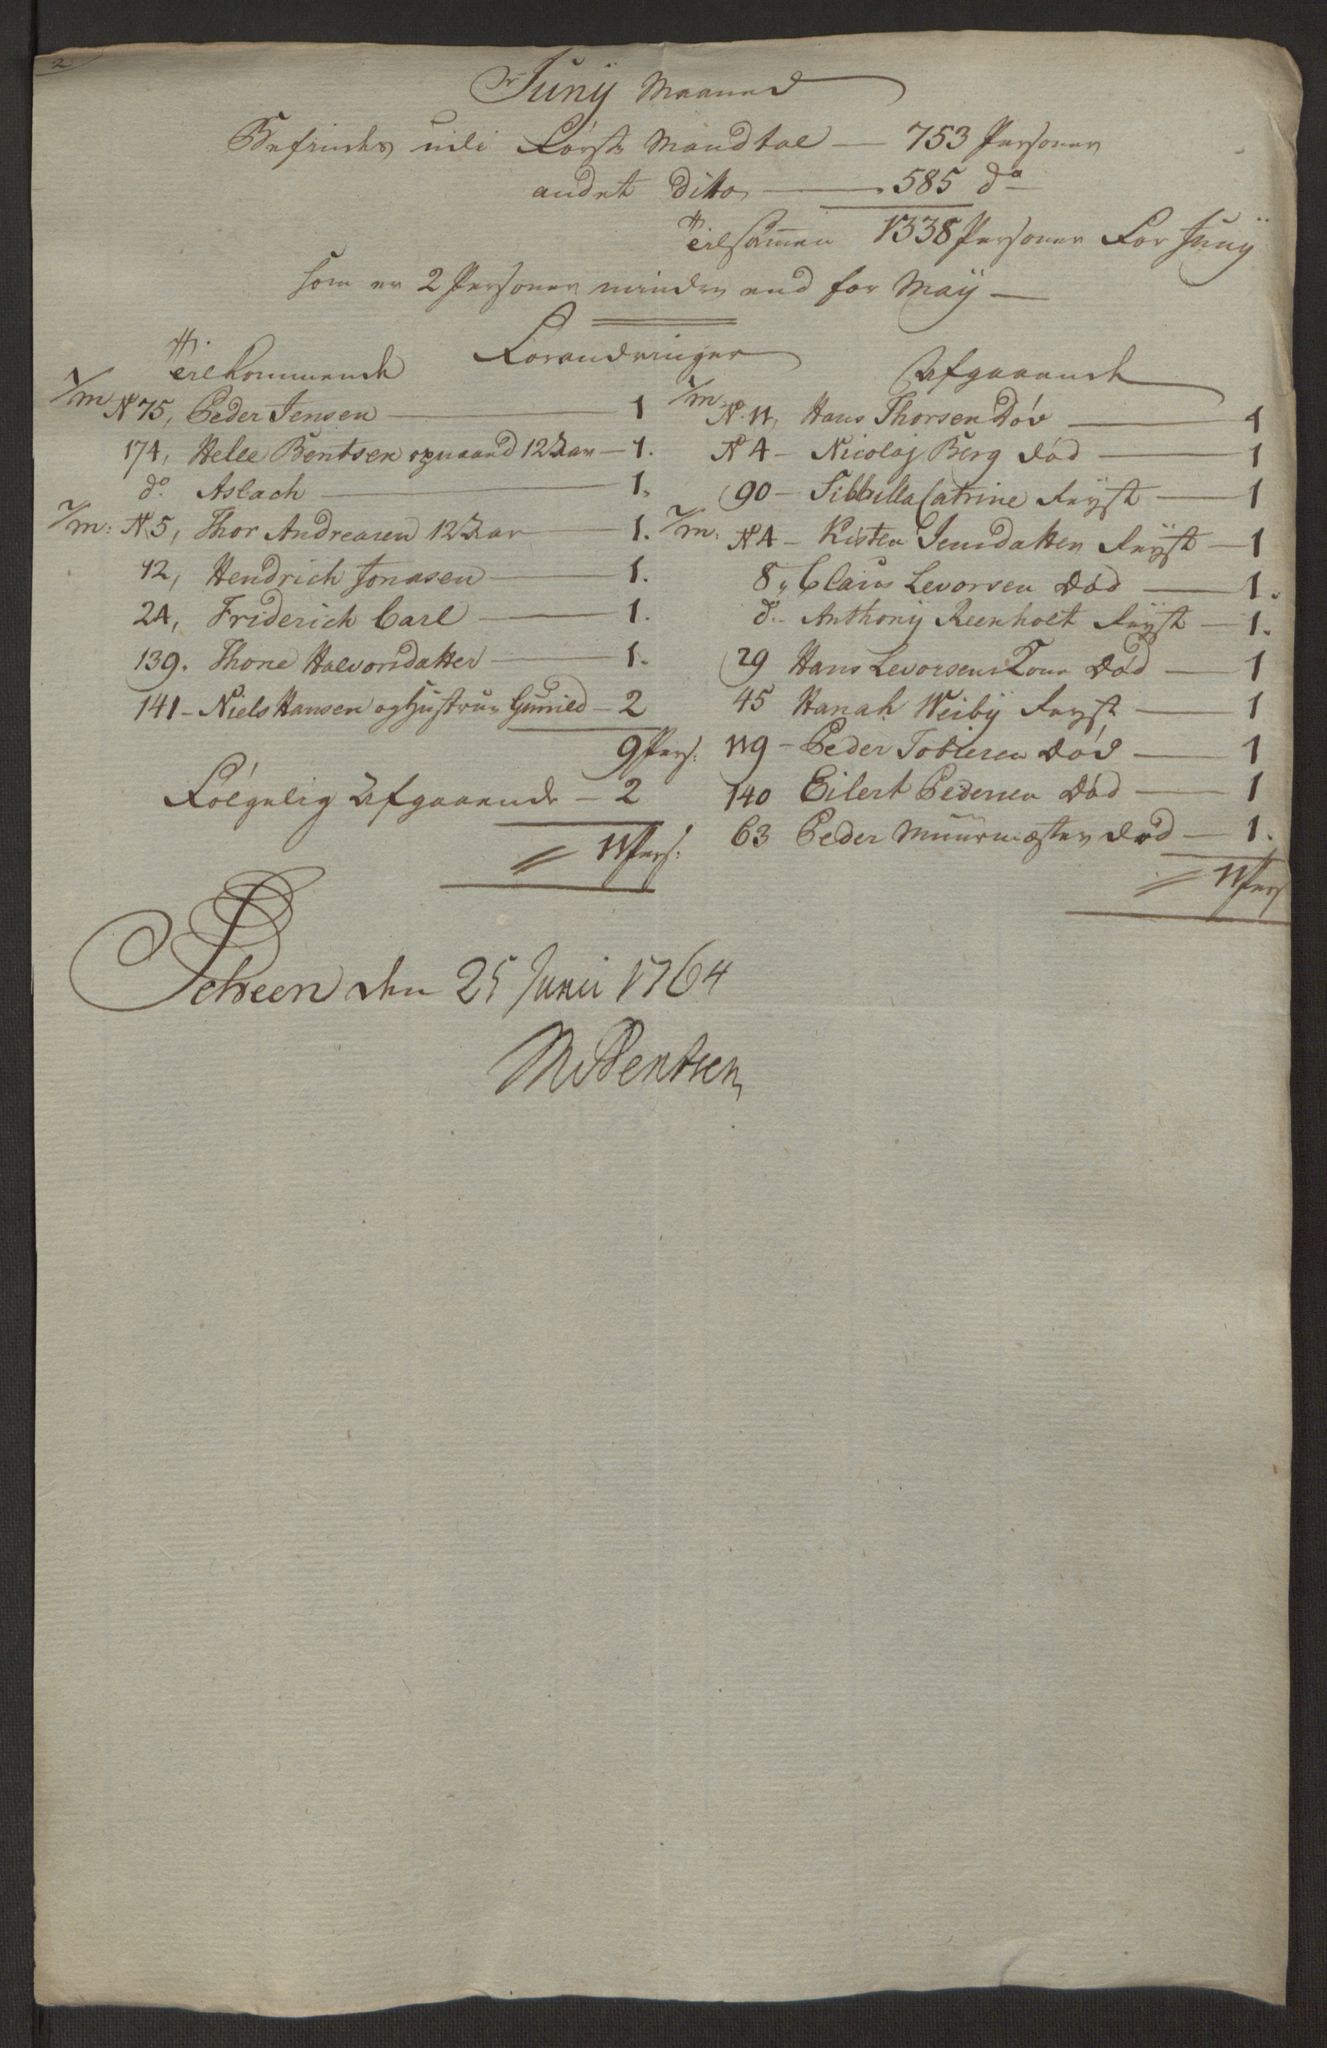 2
Juny Maaned
Befindes udi Første Mandtal — 753 Personer
andet Ditto — 585 do
Tilsammen 1338 Personer For Juny
som er 2 Personer mindre end for May —
Forandringer
Tilkommende
1/m N 75, Peder Jensen — 1
174, Helle Bentsen opnaaed 12 Aar — 1.
do. Aslach — 1.
2/m: N 5, Thor Andreasen 12 Aar — 1.
12, Hendrich Jonasen — 1.
24, Friderich Carl — 1.
139. Thone Halvorsdatter — 1.
141 – Niels Hansen og Hustrue Gunild – 2
9 Pers:
Følgelig Afgaaende – 2
11 Pers:
Afgaaende
1/m N. 11, Hans Thorsen Død — 1
N 4 – Nicolaj Berg Død — 1
90 – Sibbilla Catrine Reyst — 1
2/m: N 4 – Kisten Jensdatter Reyst — 1
8, Claus Levorsen Død — 1.
do. Anthony Reenholt Reyst — 1.
29 Hans Levorsens Død — 1
45 Hanah Weiby Reyst — 1
119 – Peder Tobiesen Død — 1
140 Eilert Pedersen Død — 1
63 Peder Muurmester Død — 1.
11 Pers
Scheen den 25 Junii 1764
Bentsen